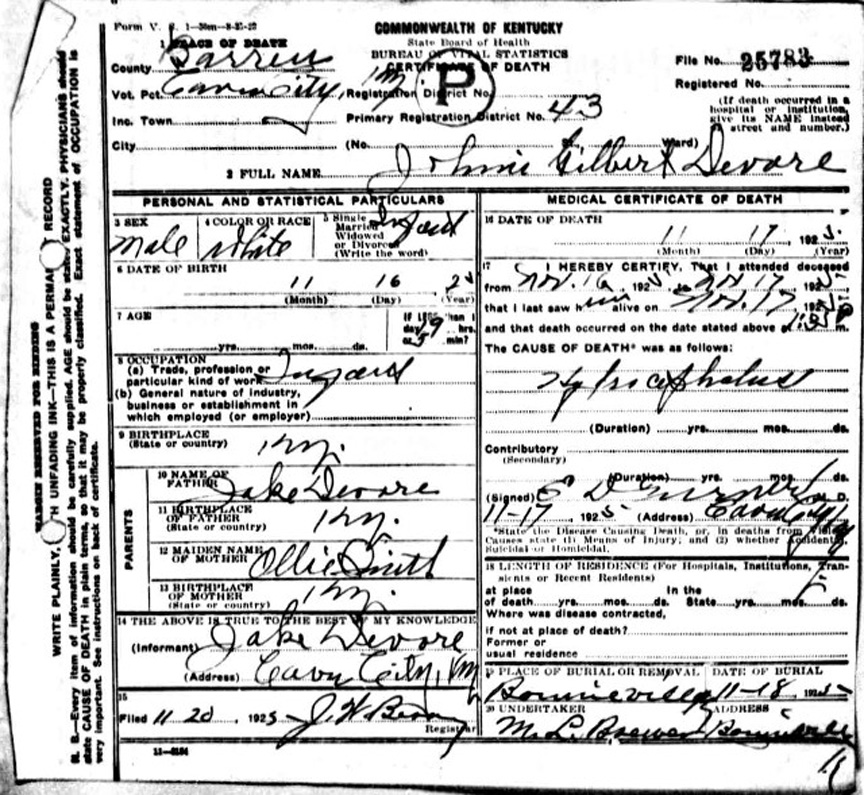 Form V. S. 1
COMMONWEALTH OF KENTUCKY
State Board of Health
BUREAU OF VITAL STATISTICS
CERTIFICATE OF DEATH
File No. 25783
Registered No.
(If death occurred in a hospital or institution, give its NAME instead of street and number.)
1 PLACE OF DEATH
County Barren
Vot. Pct. Cave City, Ky. Registration District No.
P
Inc. Town Primary Registration District No. 43
City (No. St. Ward)
2 FULL NAME Johnie Gilbert Devore
PERSONAL AND STATISTICAL PARTICULARS
3 SEX Male
4 COLOR OR RACE White
5 Single Married Widowed or Divorced (Write the word) Infant
6 DATE OF BIRTH
11 16 25
(Month) (Day) (Year)
7 AGE
yrs. mos. ds.
If LESS than 1 day 9 hrs. or 5 min?
8 OCCUPATION
(a) Trade, profession or particular kind of work Infant
(b) General nature of industry, business or establishment in which employed (or employer)
9 BIRTHPLACE (State or country) Ky.
PARENTS
10 NAME OF FATHER Jake Devore
11 BIRTHPLACE OF FATHER (State or country) Ky.
12 MAIDEN NAME OF MOTHER Ollie Smith
13 BIRTHPLACE OF MOTHER (State or country) Ky.
14 THE ABOVE IS TRUE TO THE BEST OF MY KNOWLEDGE
(Informant) Jake Devore
(Address) Cave City, Ky
15
Filed 11 20, 1925 J. W.
Registrar
11-3184
MEDICAL CERTIFICATE OF DEATH
16 DATE OF DEATH
11 17, 1925.
(Month) (Day) (Year)
17 I HEREBY CERTIFY, That I attended deceased
from Nov. 16, 1925, to Nov 17, 1925
that I last saw him alive on Nov. 17, 1925
and that death occurred on the date stated above at m.
The CAUSE OF DEATH* was as follows:
Hydrocephalus
(Duration) yrs. mos. ds.
Contributory
(Secondary)
(Duration) yrs. mos. ds.
(Signed) E D Turner M. D.
11-17, 1925 (Address) Cave City Ky
*State the Disease Causing Death, or, in deaths from Violent Causes state (1) Means of Injury; and (2) whether Accidental, Suicidal or Homicidal.
18 LENGTH OF RESIDENCE (For Hospitals, Institutions, Transients or Recent Residents)
at place of death yrs. mos. ds. In the State yrs. mos. ds.
Where was disease contracted,
if not at place of death?
Former or usual residence
19 PLACE OF BURIAL OR REMOVAL DATE OF BURIAL
Bonnieville Ky 11-18 1925
20 UNDERTAKER ADDRESS
M. L. Brewer Bonnieville
MARGIN RESERVED FOR BINDING
WRITE PLAINLY, WITH UNFADING INK—THIS IS A PERMANENT RECORD
N. B.—Every item of information should be carefully supplied. AGE should be stated EXACTLY. PHYSICIANS should
state CAUSE OF DEATH in plain terms, so that it may be properly classified. Exact statement of OCCUPATION is
very important. See instructions on back of certificate.